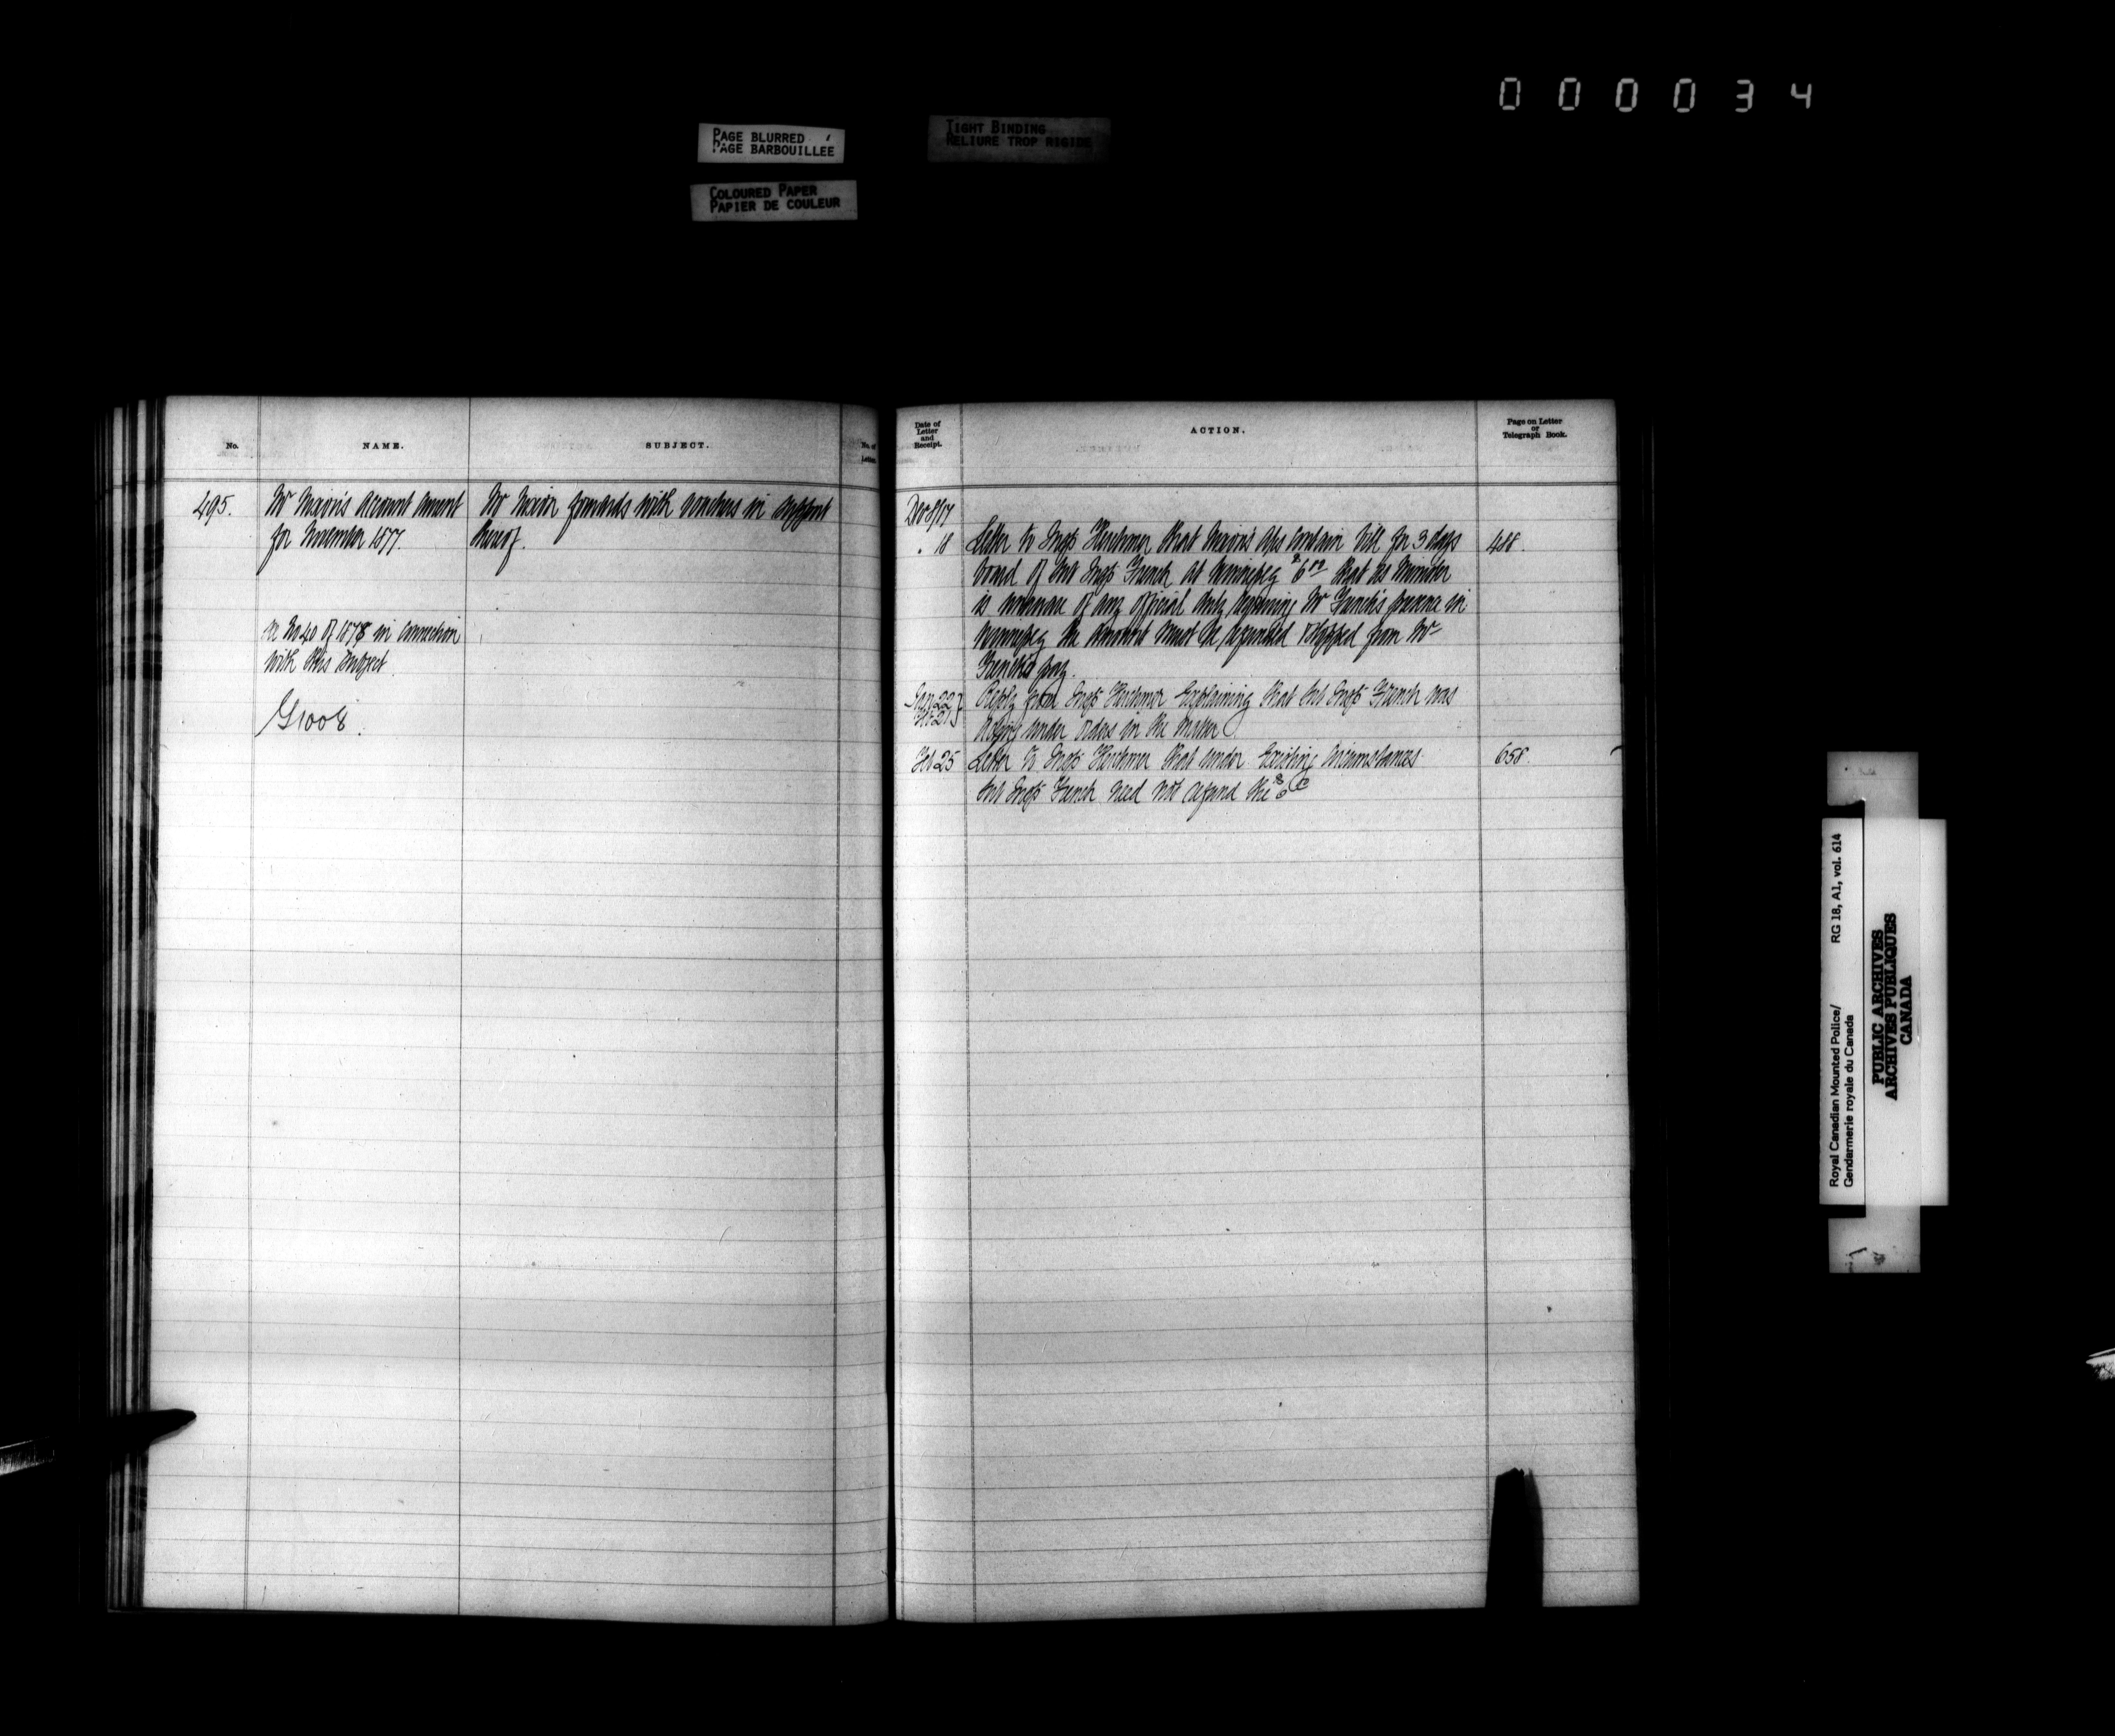 000034
PAGE BLURRED
PAGE BARBOUILLEE
TIGHT BINDING
RELIURE TROP RIGIDE
COLOURED PAPER
PAPIER DE COULEUR
No.
NAME.
SUBJECT.
No. of
Letter
495.
Mr Nixon's Account Current
for November 1877.
Mr Nixon forwards with vouchers in support
thereof.
see No 40 of 1878 in connection
with this subject.
G1008.
Date of
Letter
and
Receipt.
ACTION.
Page on Letter
or
Telegraph Book.
Dec 8/17
" 18
Letter to Inspr Herchmer that Nixon's A/cs contain bill for 3 days
board of Sub Inspr French at Winnipeg $6.00 that as Minister
is unaware of any official duty requiring Mr French's presence in
Winnipeg the amount must be refunded or stopped from Mr
French's pay.
488.
Jan 22
Feb 21
Reply from Inspr Herchmer explaining that Sub Inspr French was
acting under orders in the matter
Feb 25
Letter to Inspr Herchmer that under existing circumstances
Sub Inspr French need not refund the $6
658.
Royal Canadian Mounted Police/
Gendarmerie royale du Canada
RG 18, A1, vol. 614
PUBLIC ARCHIVES
ARCHIVES PUBLIQUES
CANADA